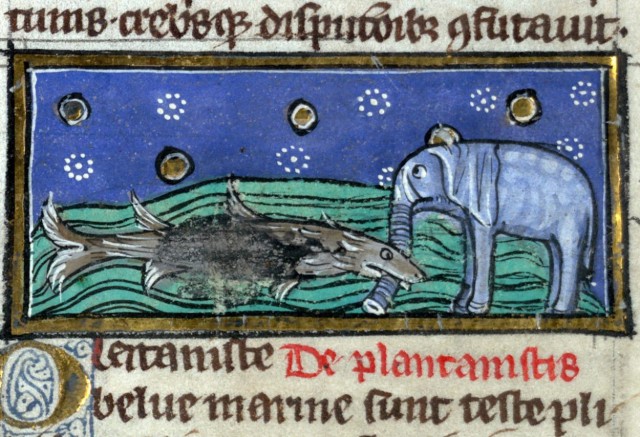 tumis· crebisqꝫ disputoibꝫ ꝯfutauit·
Plantaniste De plantanistis
belue marine sunt teste pli-